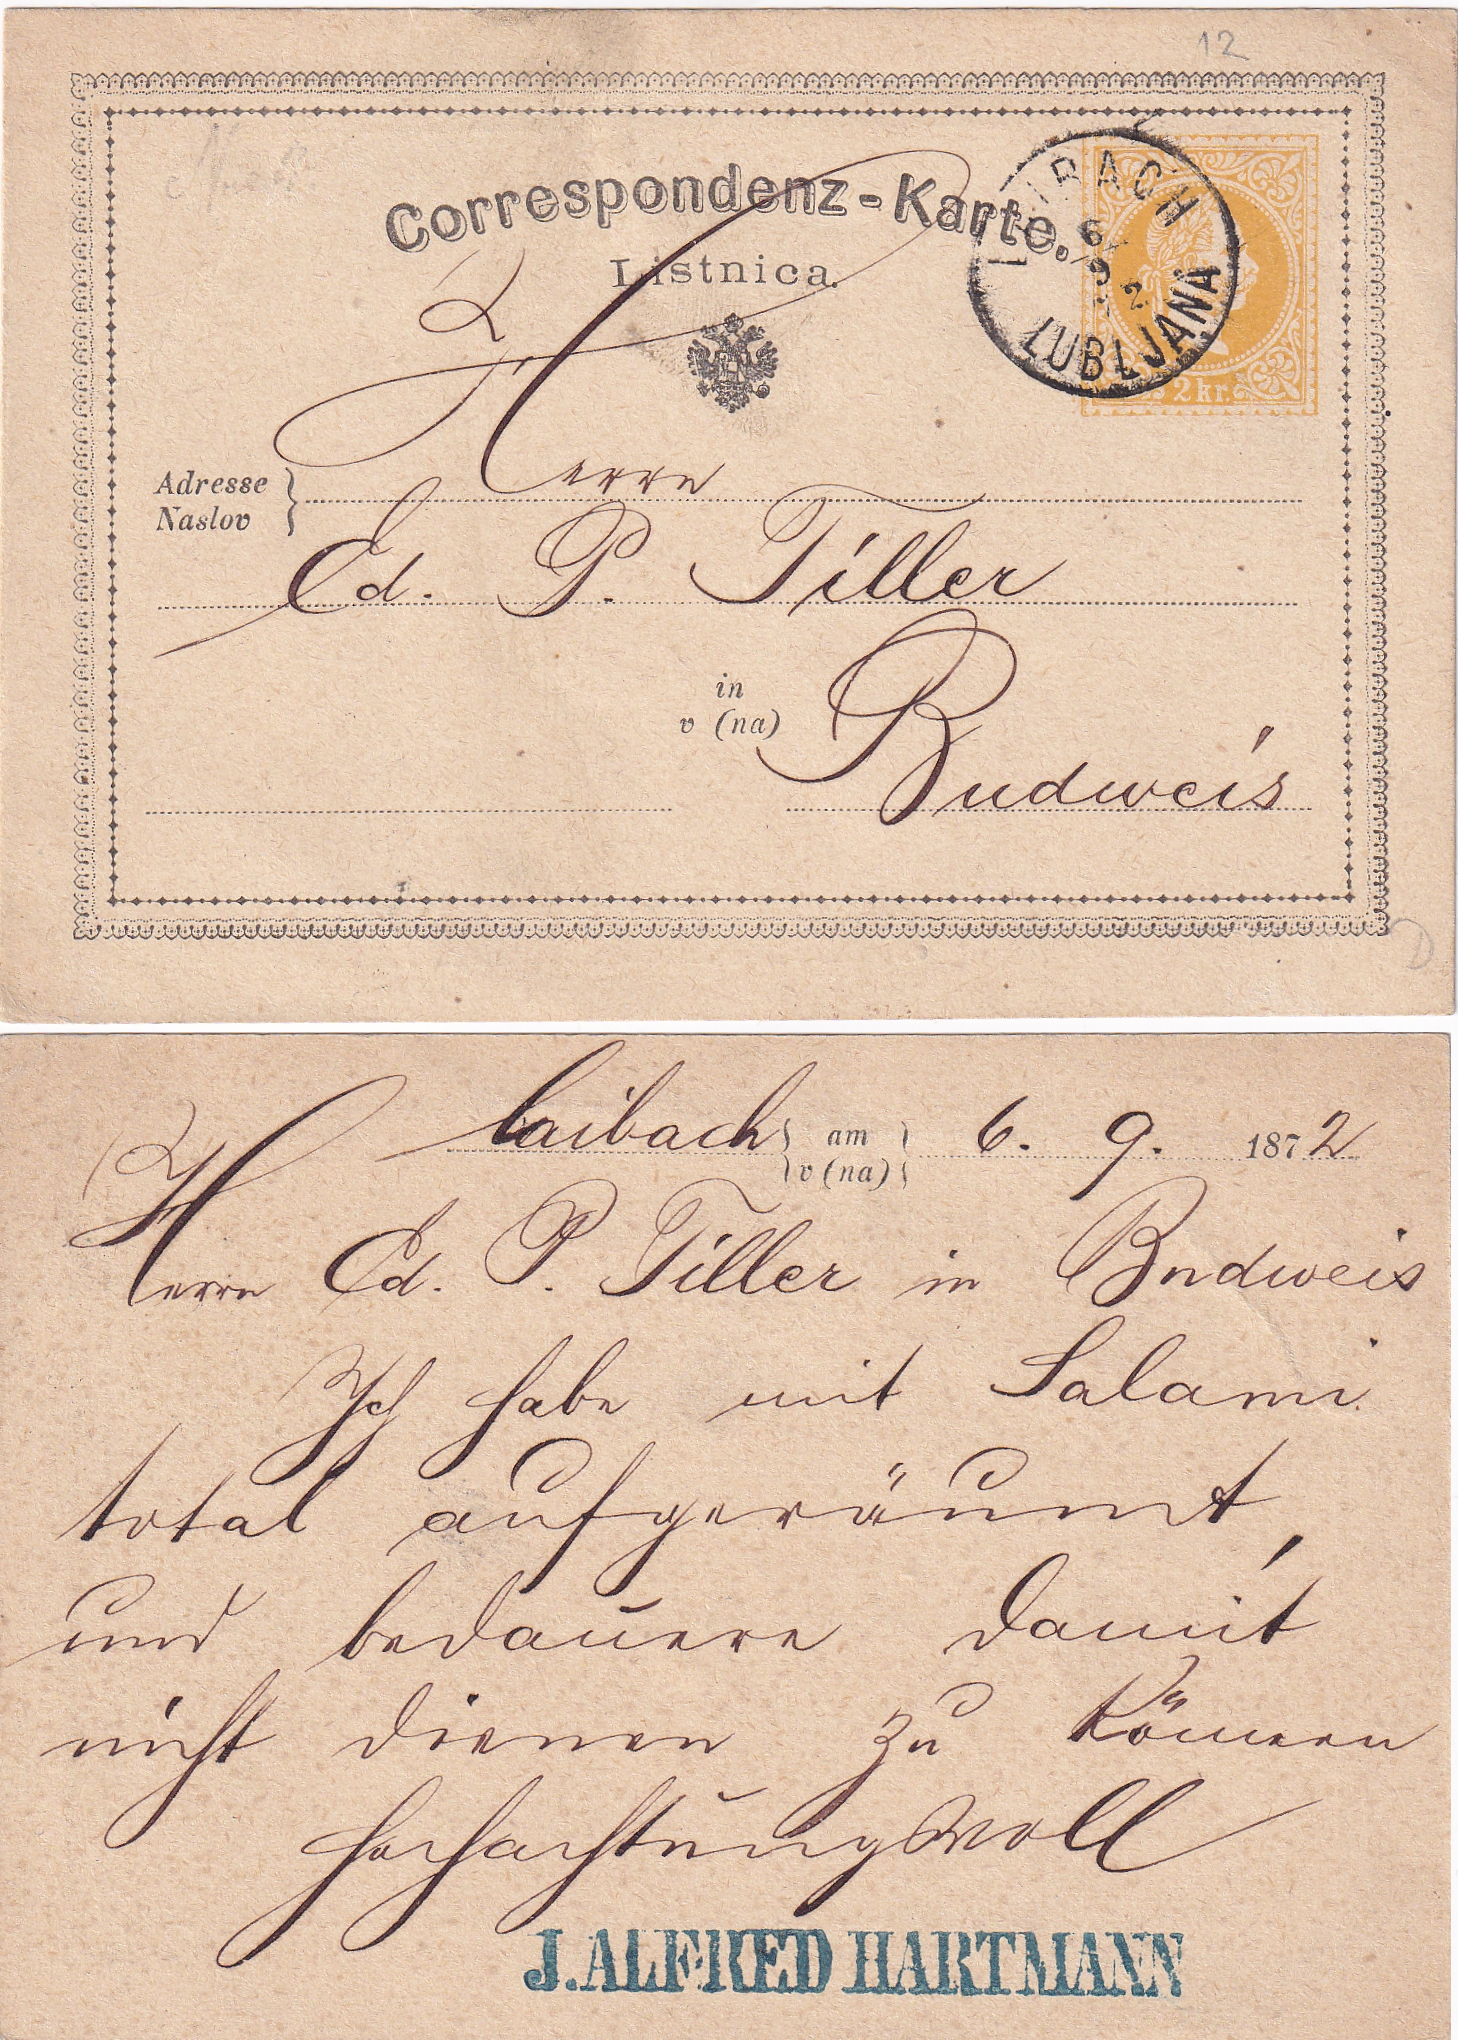 12
Correspondenz-Karte.
Listnica.
LAIBACH
6/9
LUBLJANA
2 kr.
Herrn
Adresse
Naslov
Ed. P. Tiller
in
v (na)
Budweis
D
Laibach am 6. 9. 1872
v (na)
Herrn Ed. P. Tiller in Budweis
Ich habe mit Salami
total aufgeräumt,
und bedauere damit
nicht dienen zu können
hochachtungsvoll
J. ALFRED HARTMANN